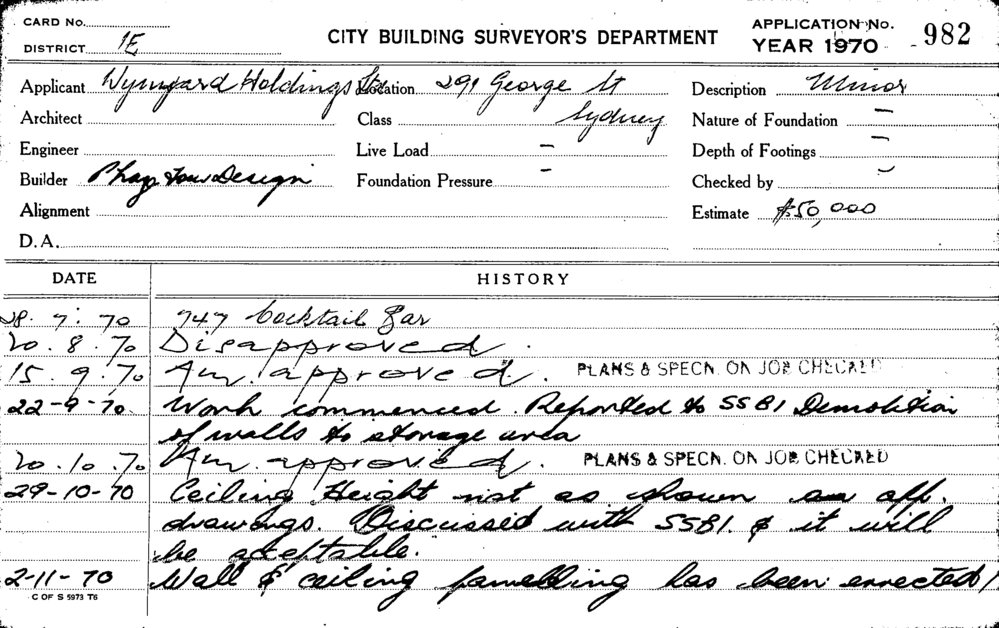 CARD No.
DISTRICT 1E
CITY BUILDING SURVEYOR'S DEPARTMENT
APPLICATION No. 982
YEAR 1970
Applicant Wynyard Holdings Ltd Location 291 George St
Sydney
Description Minor
Architect
Class
Nature of Foundation —
Engineer
Live Load —
Depth of Footings —
Builder Design
Foundation Pressure -
Checked by
Alignment
Estimate $50,000
D.A.
DATE HISTORY
28.7.70 747 Cocktail Bar
20.8.70 Disapproved.
15.9.70 Am. approved. PLANS & SPECN. ON JOB CHECKED
22-9-70. Work commenced. Reported to SSBI Demolition
of walls to storage area
20.10.70 Am. approved. PLANS & SPECN. ON JOB CHECKED
29-10-70 Ceiling Height not as shown on app.
drawings. Discussed with SSBI. & it will
be acceptable.
2-11-70 Wall & ceiling panelling has been errected
C OF S 5973 T6